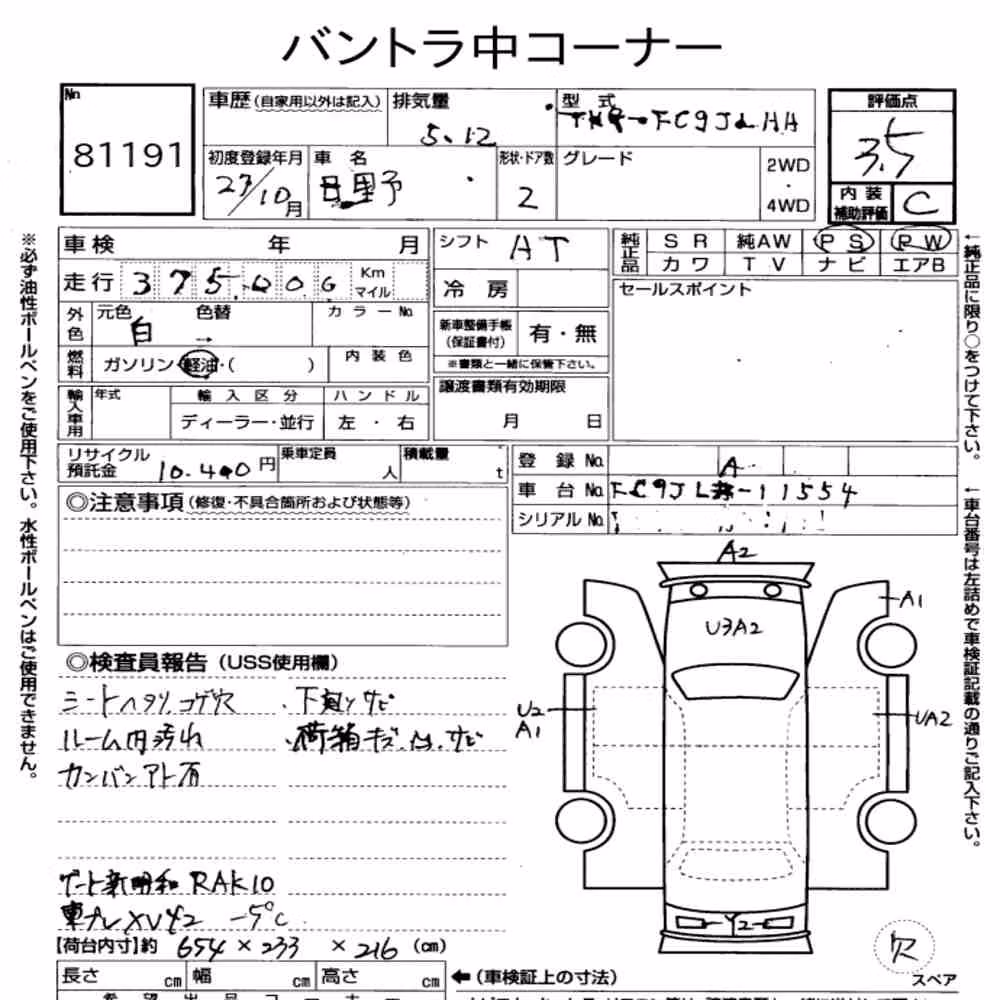 バントラ中コーナー
No
81191
車歴(自家用以外は記入) 排気量 型式
5.12 FC9J HA
初度登録年月 車名 形状・ドア数 グレード 2WD・4WD
23/10月 日野 2
評価点
3.5
内装補助評価 C
※必ず油性ボールペンをご使用下さい。水性ボールペンはご使用できません。
車検 年 月
走行 375,000 Km マイル
外色 元色 白 色替 → カラーNo
燃料 ガソリン・軽油・( ) 内装色
輸入車用 年式 輸入区分 ハンドル
ディーラー・並行 左・右
リサイクル預託金 10.440円 乗車定員 人 積載量 t
シフト AT
冷房
新車整備手帳(保証書付) 有・無
※書類と一緒に保管下さい。
譲渡書類有効期限
月 日
純正品 SR 純AW PS PW
カワ TV ナビ エアB
セールスポイント
←純正品に限り○をつけて下さい。
登録No. A
車台No. FC9J -11554
シリアルNo.
←車台番号は左詰めで車検証記載の通りご記入下さい。
◎注意事項(修復・不具合箇所および状態等)
◎検査員報告(USS使用欄)
シートヘタリ コゲ穴 下廻りサビ
ルーム内汚れ 荷箱キズ.凹.サビ
カンバンアト有
ゲート新明和 RAK10
東プレ -5℃
【荷台内寸】約 654×233×216(cm)
長さ cm 幅 cm 高さ cm ←(車検証上の寸法)
A2
U3A2
A1
U2
A1
UA2
Y2
欠
スペア